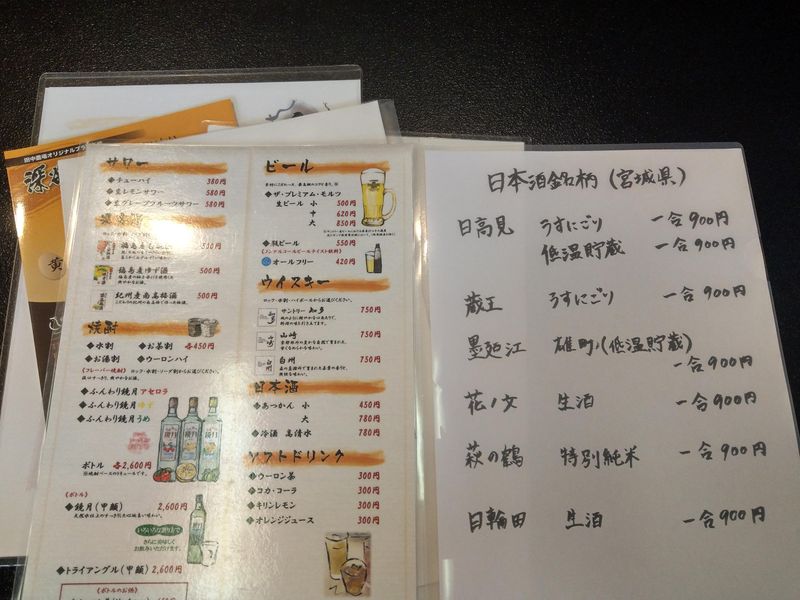 田中農場オリジナルブラ
サワー
◆チューハイ 380円
◆生レモンサワー 580円
◆生グレープフルーツサワー 580円
500円
福島産ゆず酒 500円
紀州産南高梅酒 500円
焼酎
◆水割 ◆お茶割 各450円
◆お湯割 ◆ウーロンハイ
(フレーバー焼酎)
◆ふんわり鏡月アセロラ
◆ふんわり鏡月ゆず
◆ふんわり鏡月うめ
ボトル 各2,600円
(ボトル)
◆鏡月(甲類) 2,600円
いろいろな割り方で
さらに美味しく
お飲みいただけます。
◆トライアングル(甲類) 2,600円
(ボトルのお供)
ビール
◆ザ・プレミアム・モルツ
生ビール 小 500円
中 620円
大 850円
◆瓶ビール 550円
(ノンアルコールビールテイスト飲料)
オールフリー 420円
ウイスキー
ロック・水割・ハイボールからお選びください。
サントリー 知多 750円
山崎 750円
白州 750円
日本酒
◆あつかん 小 450円
大 780円
◆冷酒 高清水 780円
ソフトドリンク
◆ウーロン茶 300円
◆コカ・コーラ 300円
◆キリンレモン 300円
◆オレンジジュース 300円
日本酒銘柄(宮城県)
日高見 うすにごり 一合900円
低温貯蔵 一合900円
蔵王 うすにごり 一合900円
墨廼江 雄町(低温貯蔵)
一合900円
花ノ文 生酒 一合900円
萩の鶴 特別純米 一合900円
日輪田 生酒 一合900円